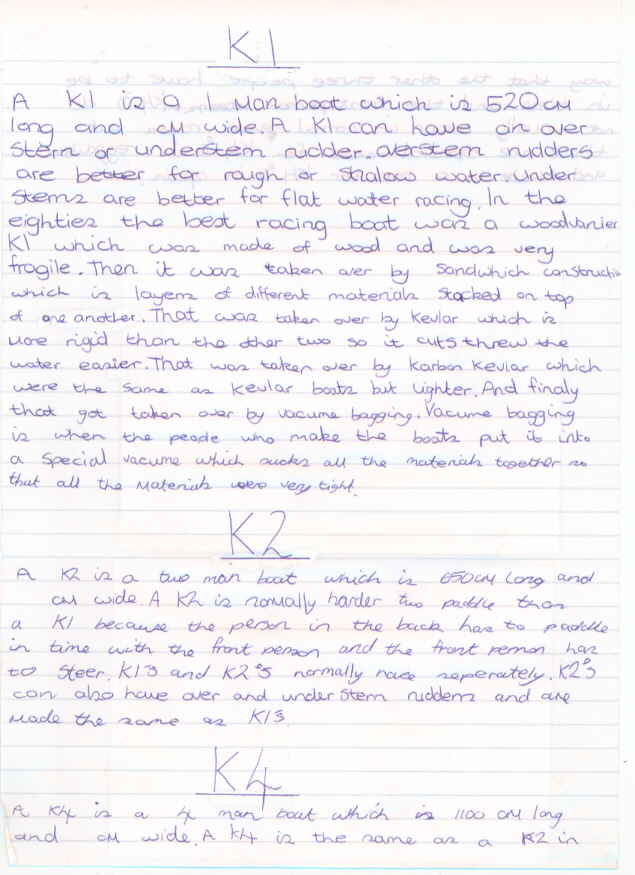 K1
A K1 is a 1 Man boat which is 520cm
long and cm wide. A K1 can have an over
stern or understern rudder. overstern rudders
are better for rough or shalow water. Under
sterns are better for flat water racing. In the
eighties the best racing boat was a woodvanier
K1 which was made of wood and was very
fragile. Then it was taken over by Sandwhich constructio
which is layers of different materials stacked on top
of one another. That was taken over by Kevlar which is
more rigid than the other two so it cuts threw the
water easier. That was taken over by Karbon Kevlar which
were the same as Kevlar boats but lighter. And finaly
that got taken over by vacume bagging. Vacume bagging
is when the people who make the boats put it into
a special vacume which sucks all the materials together so
that all the Materials were very tight.
K2
A K2 is a two man boat which is 650cm long and
cm wide. A K2 is normally harder two paddle than
a K1 because the person in the back has to paddle
in time with the front person and the front person has
to steer. K1s and K2's normally race seperately. K2's
can also have over and under stern rudders and are
made the same as K1s.
K4
A K4 is a 4 man boat which is 1100 cm long
and cm wide. A K4 is the same as a K2 in